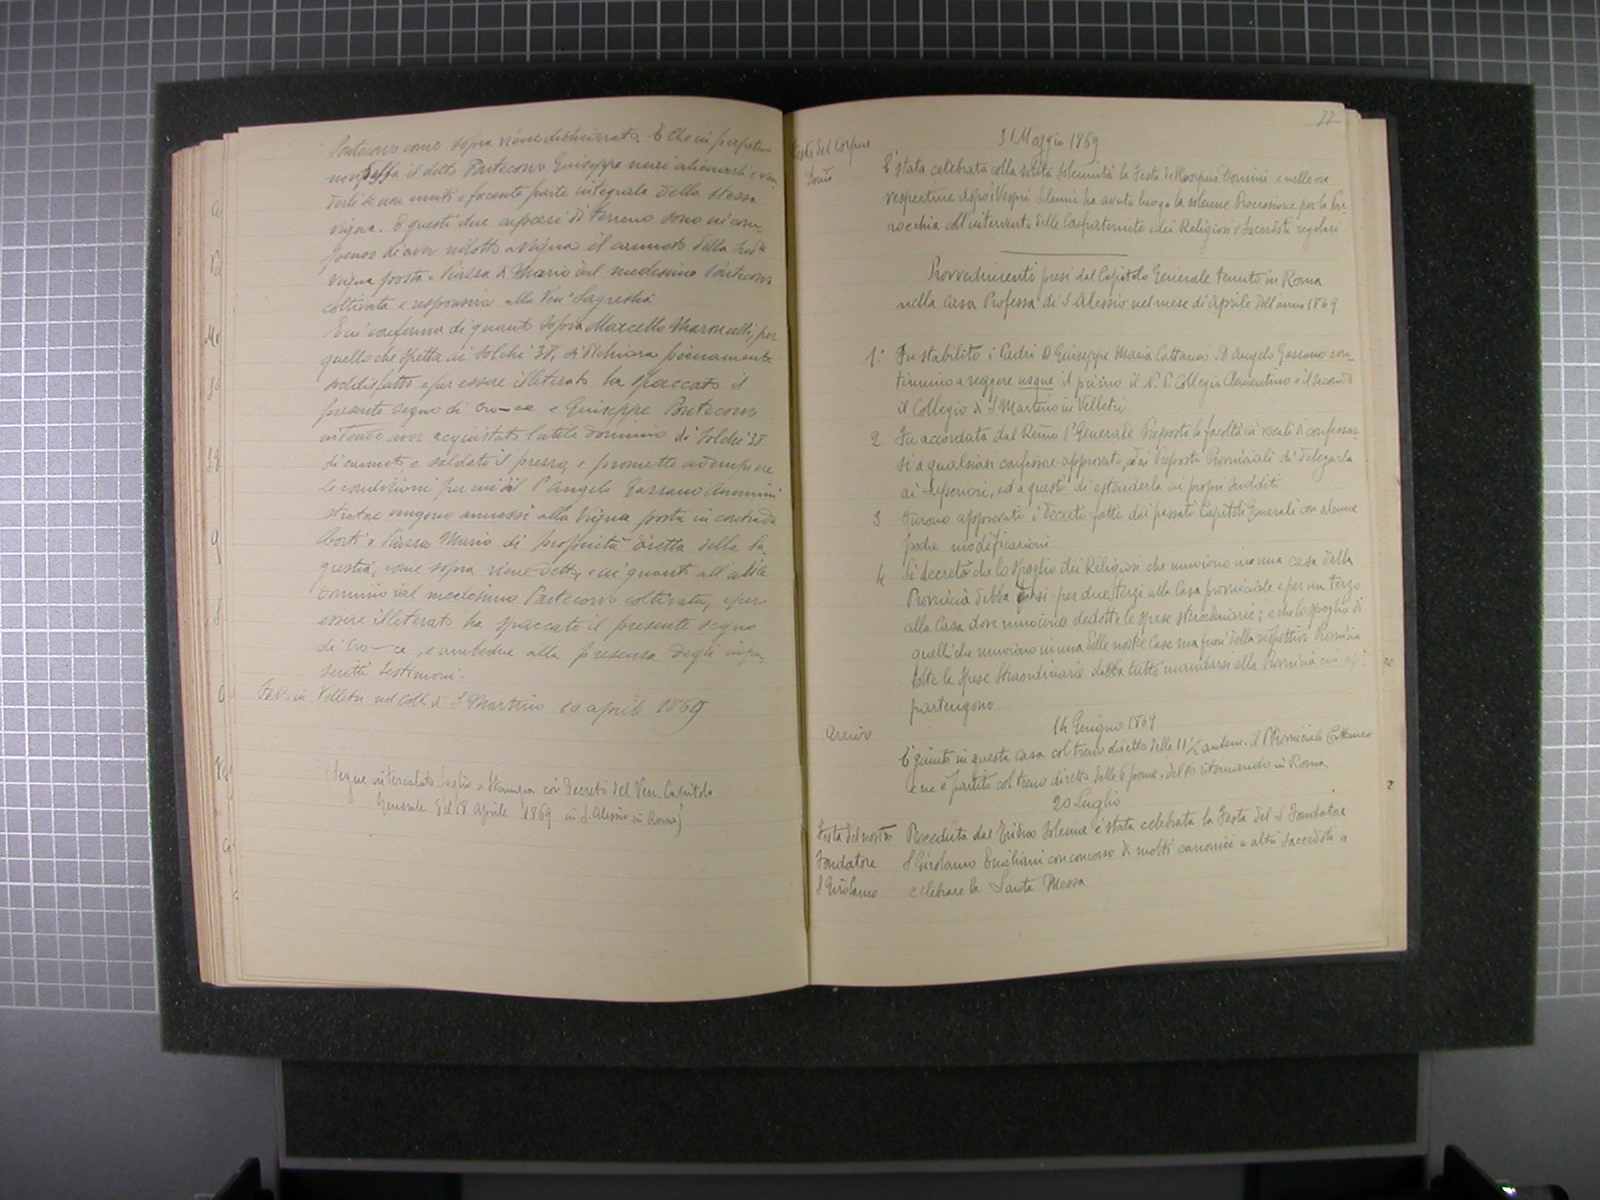 Pontecorvo come sopra viene dichiarato. E che in perpetuo
non possa il detto Pontecorvo Giuseppe mai alienarli e ven-
derli se non uniti e facente parte integrale della stessa
vigna. E questi due appezzi di terreno sono in com-
penso di aver ridotto a vigna il canneto della sud.ta
vigna posta a Piazza di Mario dal medesimo Pontecorvo
coltivata e responsiva alla Ven. Sagrestia
E in conferma di quanto sopra Marcello Maroncelli, per
quello che spetta ai solchi 38, si dichiara pienamente
soddisfatto e per essere illeterato ha spaccato il
presente segno di cro—ce e Giuseppe Pontecorvo
intende aver acquistato l'utile dominio di solchi 38
di canneto, e saldato il prezzo, e promette adempiere
le condizioni per cui dal P. Angelo Gazzano Ammini
stratore vengono annessi alla vigna posta in contrada
Piazza Mario di proprietà diretta della Sa
grestia, come sopra viene detto, e in quanto all'utile
dominio dal medesimo Pontecorvo coltivata, e per
essere illeterato ha spaccato il presente segno
di Cro—ce, e ambedue alla presenza degli infra-
scritti testimoni.
Fatto in Velletri nel Coll. di S. Martino 10 aprile 1869
(Segue intercalato foglio a stampa coi Decreti del Ven. Capitolo
Generale del 18 Aprile 1869 in S. Alessio in Roma)
77
31 Maggio 1869
Festa del Corpus
Domi
E' stata celebrata colla solita solennità la Festa del Corpus Domini e nelle ore
vespertine dopo i Vespri solenni ha avuto luogo la solenne Processione per la Par-
rocchia coll'intervento delle Confraternite e dei Religiosi e Sacerdoti regolari
Provvedimenti presi dal Capitolo Generale tenuto in Roma
nella Casa Professa di S. Alessio nel mese di Aprile dell'anno 1869
1° Fu stabilito i Padri D. Giuseppe Maria Cattaneo - D. Angelo Gazzano con-
tinuino a reggere usque il primo il N. P. Collegio Clementino e il secondo
il Collegio di S. Martino in Velletri
2 Fu accordata dal Rev.mo P. Generale Preposto la facoltà ai vocali di confessar-
si a qualsiasi confessore approvato, ed ai Preposti Provinciali di delegarla
ai Superiori, ed a questi di estenderla ai propri sudditi
3 Furono approvati i Decreti fatti dai passati Capitoli Generali con alcune
poche modificazioni
4 Si decretò che lo spoglio dei Religiosi che muoiono in una casa della
Provincia debba darsi per due terzi alla Casa provinciale e per un terzo
alla Casa dove muoiono dedotte le spese straordinarie; e che lo spoglio di
quelli che muoiono in una delle nostre Case ma fuori della rispettiva Provincia
tolte le spese straordinarie debba tutto mandarsi alla Provincia cui ap-
partengono
14 Giugno 1869
Arrivo
E' giunto in questa casa col treno diretto delle 11 1/2 antem. il P. Provinciale Cattaneo
e ne è partito col treno diretto delle 6 pome. del 16 ritornando in Roma
20 Luglio
Festa del nostro
Fondatore
S Girolamo
Preceduta dal Triduo solenne è stata celebrata la Festa del S. Fondatore
S Girolamo Emiliani con concorso di molti canonici e altri sacerdoti a
celebrare la Santa Messa